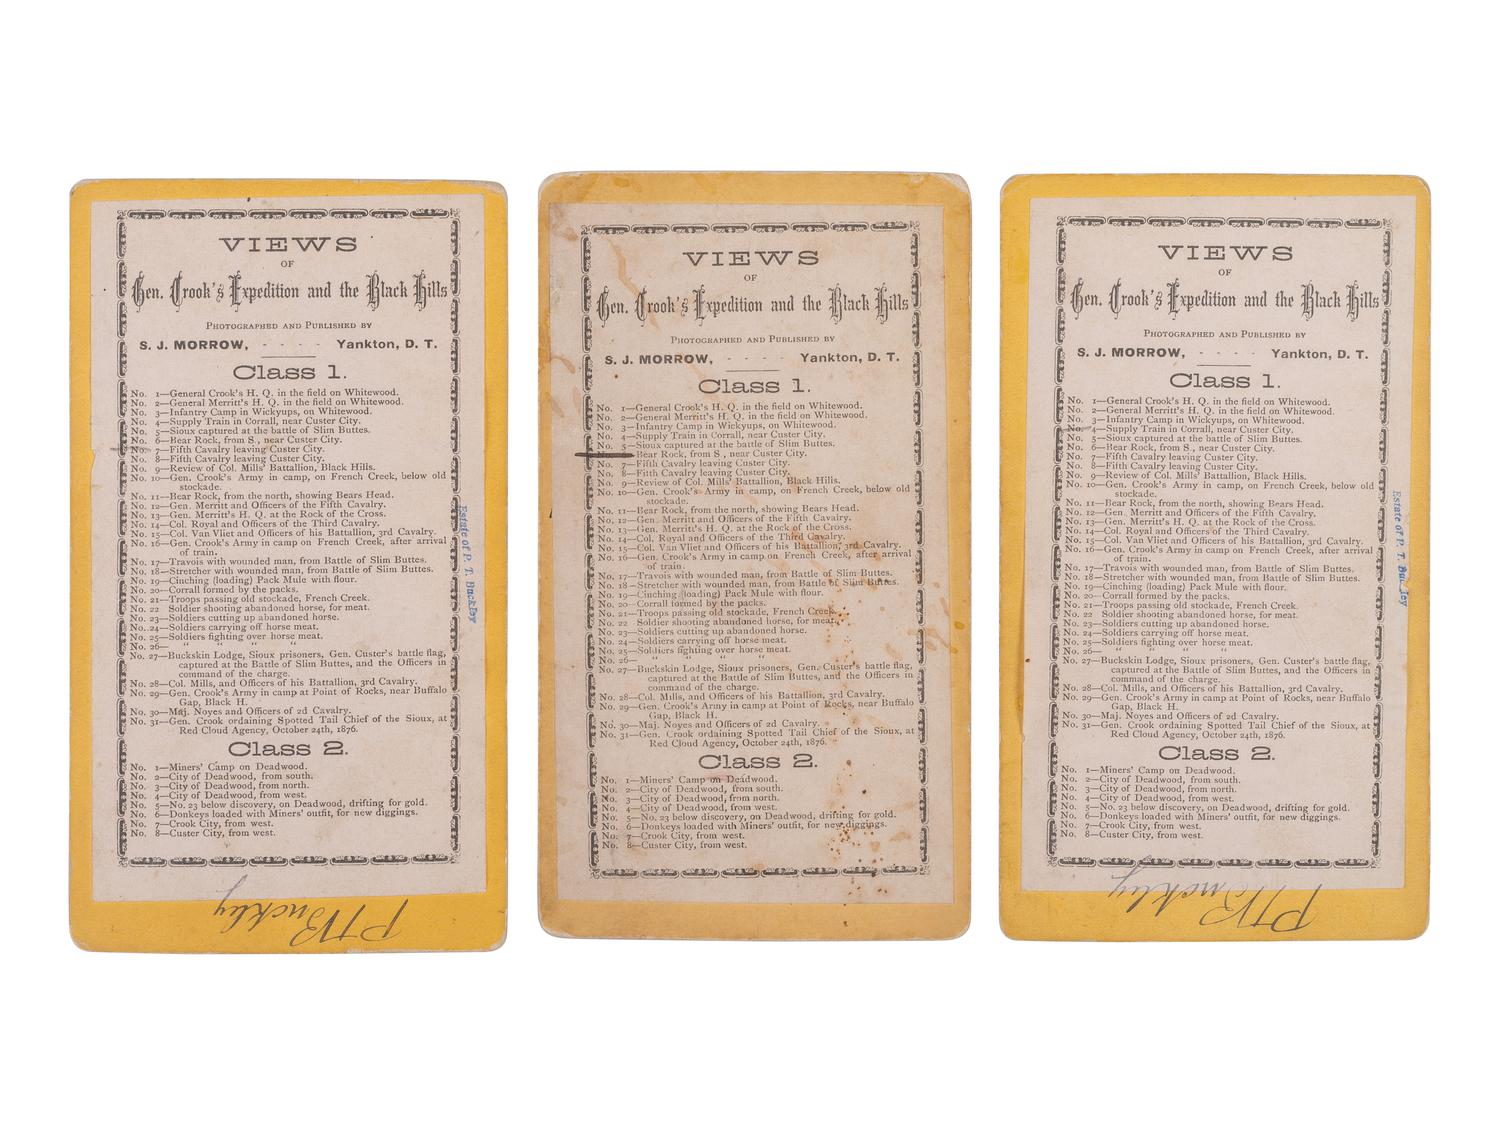 VIEWS
OF
Gen. Crook's Expedition and the Black Hills
PHOTOGRAPHED AND PUBLISHED BY
S. J. MORROW, - - - - Yankton, D. T.
Class 1.
No. 1—General Crook's H. Q. in the field on Whitewood.
No. 2—General Merritt's H. Q. in the field on Whitewood.
No. 3—Infantry Camp in Wickyups, on Whitewood.
No. 4—Supply Train in Corrall, near Custer City.
No. 5—Sioux captured at the battle of Slim Buttes.
No. 6—Bear Rock, from S., near Custer City.
No. 7—Fifth Cavalry leaving Custer City.
No. 8—Fifth Cavalry leaving Custer City.
No. 9—Review of Col. Mills' Battallion, Black Hills.
No. 10—Gen. Crook's Army in camp, on French Creek, below old
stockade.
No. 11—Bear Rock, from the north, showing Bears Head.
No. 12—Gen. Merritt and Officers of the Fifth Cavalry.
No. 13—Gen. Merritt's H. Q. at the Rock of the Cross.
No. 14—Col. Royal and Officers of the Third Cavalry.
No. 15—Col. Van Vliet and Officers of his Battallion, 3rd Cavalry.
No. 16—Gen. Crook's Army in camp on French Creek, after arrival
of train.
No. 17—Travois with wounded man, from Battle of Slim Buttes.
No. 18—Stretcher with wounded man, from Battle of Slim Buttes.
No. 19—Cinching (loading) Pack Mule with flour.
No. 20—Corrall formed by the packs.
No. 21—Troops passing old stockade, French Creek.
No. 22 Soldier shooting abandoned horse, for meat.
No. 23—Soldiers cutting up abandoned horse.
No. 24—Soldiers carrying off horse meat.
No. 25—Soldiers fighting over horse meat.
No. 26— " " " "
No. 27—Buckskin Lodge, Sioux prisoners, Gen. Custer's battle flag,
captured at the Battle of Slim Buttes, and the Officers in
command of the charge.
No. 28—Col. Mills, and Officers of his Battallion, 3rd Cavalry.
No. 29—Gen. Crook's Army in camp at Point of Rocks, near Buffalo
Gap, Black H.
No. 30—Maj. Noyes and Officers of 2d Cavalry.
No. 31—Gen. Crook ordaining Spotted Tail Chief of the Sioux, at
Red Cloud Agency, October 24th, 1876.
Class 2.
No. 1—Miners' Camp on Deadwood.
No. 2—City of Deadwood, from south.
No. 3—City of Deadwood, from north.
No. 4—City of Deadwood, from west.
No. 5—No. 23 below discovery, on Deadwood, drifting for gold.
No. 6—Donkeys loaded with Miners' outfit, for new diggings.
No. 7—Crook City, from west.
No. 8—Custer City, from west.
Estate of P. T. Buckley
PTBuckley
VIEWS
OF
Gen. Crook's Expedition and the Black Hills
PHOTOGRAPHED AND PUBLISHED BY
S. J. MORROW, - - - - Yankton, D. T.
Class 1.
No. 1—General Crook's H. Q. in the field on Whitewood.
No. 2—General Merritt's H. Q. in the field on Whitewood.
No. 3—Infantry Camp in Wickyups, on Whitewood.
No. 4—Supply Train in Corrall, near Custer City.
No. 5—Sioux captured at the battle of Slim Buttes.
Bear Rock, from S., near Custer City.
No. 7—Fifth Cavalry leaving Custer City.
No. 8—Fifth Cavalry leaving Custer City.
No. 9—Review of Col. Mills' Battallion, Black Hills.
No. 10—Gen. Crook's Army in camp, on French Creek, below old
stockade.
No. 11—Bear Rock, from the north, showing Bears Head.
No. 12—Gen. Merritt and Officers of the Fifth Cavalry.
No. 13—Gen. Merritt's H. Q. at the Rock of the Cross.
No. 14—Col. Royal and Officers of the Third Cavalry.
No. 15—Col. Van Vliet and Officers of his Battallion, 3rd Cavalry.
No. 16—Gen. Crook's Army in camp on French Creek, after arrival
of train.
No. 17—Travois with wounded man, from Battle of Slim Buttes.
No. 18—Stretcher with wounded man, from Battle of Slim Buttes.
No. 19—Cinching (loading) Pack Mule with flour.
No. 20—Corrall formed by the packs.
No. 21—Troops passing old stockade, French Creek.
No. 22 Soldier shooting abandoned horse, for meat.
No. 23—Soldiers cutting up abandoned horse.
No. 24—Soldiers carrying off horse meat.
No. 25—Soldiers fighting over horse meat.
No. 26— " " " "
No. 27—Buckskin Lodge, Sioux prisoners, Gen. Custer's battle flag,
captured at the Battle of Slim Buttes, and the Officers in
command of the charge.
No. 28—Col. Mills, and Officers of his Battallion, 3rd Cavalry.
No. 29—Gen. Crook's Army in camp at Point of Rocks, near Buffalo
Gap, Black H.
No. 30—Maj. Noyes and Officers of 2d Cavalry.
No. 31—Gen. Crook ordaining Spotted Tail Chief of the Sioux, at
Red Cloud Agency, October 24th, 1876.
Class 2.
No. 1—Miners' Camp on Deadwood.
No. 2—City of Deadwood, from south.
No. 3—City of Deadwood, from north.
No. 4—City of Deadwood, from west.
No. 5—No. 23 below discovery, on Deadwood, drifting for gold.
No. 6—Donkeys loaded with Miners' outfit, for new diggings.
No. 7—Crook City, from west.
No. 8—Custer City, from west.
VIEWS
OF
Gen. Crook's Expedition and the Black Hills
PHOTOGRAPHED AND PUBLISHED BY
S. J. MORROW, - - - - Yankton, D. T.
Class 1.
No. 1—General Crook's H. Q. in the field on Whitewood.
No. 2—General Merritt's H. Q. in the field on Whitewood.
No. 3—Infantry Camp in Wickyups, on Whitewood.
No. 4—Supply Train in Corrall, near Custer City.
No. 5—Sioux captured at the battle of Slim Buttes.
No. 6—Bear Rock, from S., near Custer City.
No. 7—Fifth Cavalry leaving Custer City.
No. 8—Fifth Cavalry leaving Custer City.
No. 9—Review of Col. Mills' Battallion, Black Hills.
No. 10—Gen. Crook's Army in camp, on French Creek, below old
stockade.
No. 11—Bear Rock, from the north, showing Bears Head.
No. 12—Gen. Merritt and Officers of the Fifth Cavalry.
No. 13—Gen. Merritt's H. Q. at the Rock of the Cross.
No. 14—Col. Royal and Officers of the Third Cavalry.
No. 15—Col. Van Vliet and Officers of his Battallion, 3rd Cavalry.
No. 16—Gen. Crook's Army in camp on French Creek, after arrival
of train.
No. 17—Travois with wounded man, from Battle of Slim Buttes.
No. 18—Stretcher with wounded man, from Battle of Slim Buttes.
No. 19—Cinching (loading) Pack Mule with flour.
No. 20—Corrall formed by the packs.
No. 21—Troops passing old stockade, French Creek.
No. 22 Soldier shooting abandoned horse, for meat.
No. 23—Soldiers cutting up abandoned horse.
No. 24—Soldiers carrying off horse meat.
No. 25—Soldiers fighting over horse meat.
No. 26— " " " "
No. 27—Buckskin Lodge, Sioux prisoners, Gen. Custer's battle flag,
captured at the Battle of Slim Buttes, and the Officers in
command of the charge.
No. 28—Col. Mills, and Officers of his Battallion, 3rd Cavalry.
No. 29—Gen. Crook's Army in camp at Point of Rocks, near Buffalo
Gap, Black H.
No. 30—Maj. Noyes and Officers of 2d Cavalry.
No. 31—Gen. Crook ordaining Spotted Tail Chief of the Sioux, at
Red Cloud Agency, October 24th, 1876.
Class 2.
No. 1—Miners' Camp on Deadwood.
No. 2—City of Deadwood, from south.
No. 3—City of Deadwood, from north.
No. 4—City of Deadwood, from west.
No. 5—No. 23 below discovery, on Deadwood, drifting for gold.
No. 6—Donkeys loaded with Miners' outfit, for new diggings.
No. 7—Crook City, from west.
No. 8—Custer City, from west.
Estate of P. T. Buckley
PTBuckley